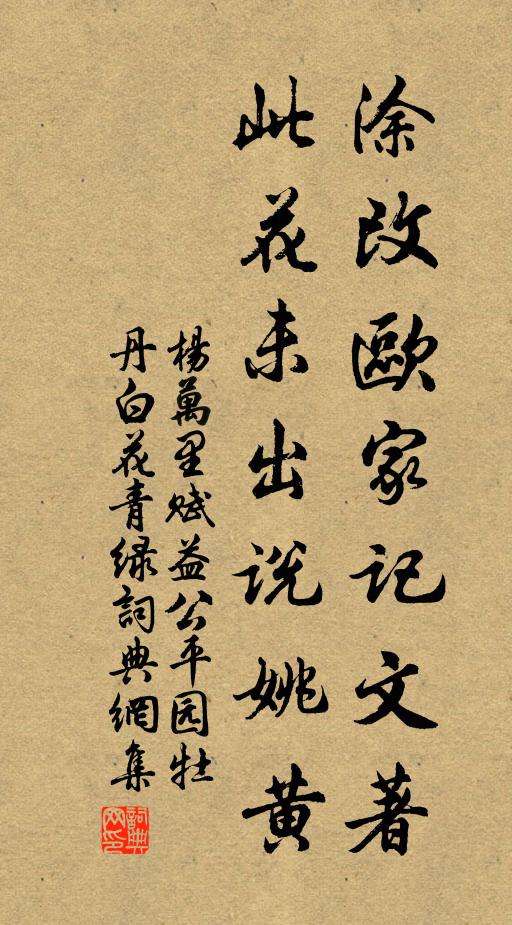 涂改歐家记文著
此花未出说姚黄
楊萬里赋益公平园牡
丹白花青绿詞典網集
詞典网印